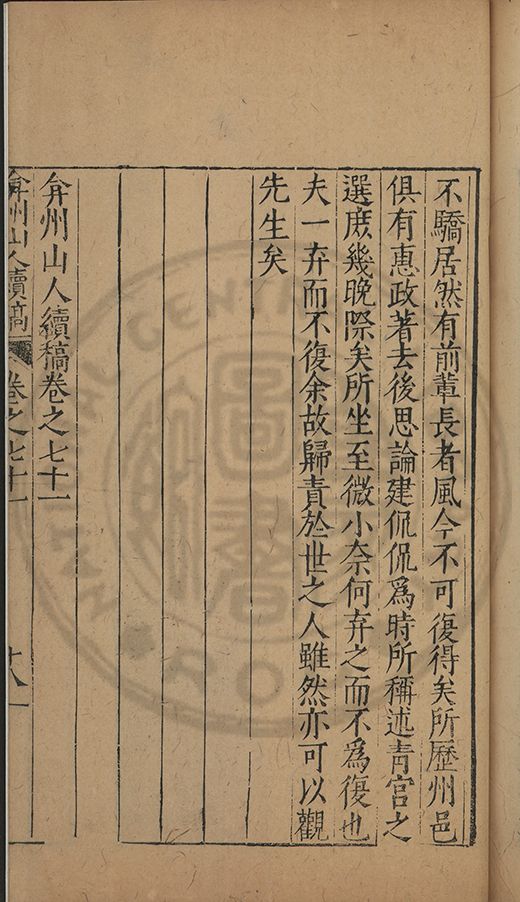 不驕居然有前輩長者風今不可復得矣所歷州邑
俱有惠政著去後思論建侃侃爲時所稱述青宫之
選庶幾晚際矣所坐至微小奈何弃之而不爲復也
夫一弃而不復余故歸責於世之人雖然亦可以觀
先生矣
弇州山人續稿卷之七十一
弇州山人續稿 卷之七十一 十八